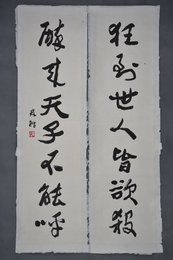 狂到世人皆欲殺
醉來天子不能呼